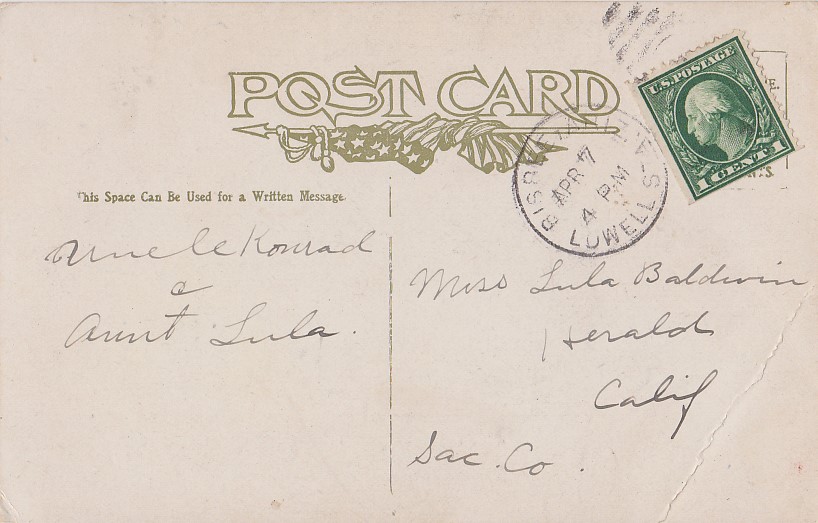 POST CARD
U.S. POSTAGE
1 CENT 1
BISBEE ARIZ.
APR 7
4 PM
LOWELL STA.
This Space Can Be Used for a Written Message
Uncle Konrad
&
Aunt Lula.
Miss Lula Baldwin
Herald
Calif
Sac. Co.